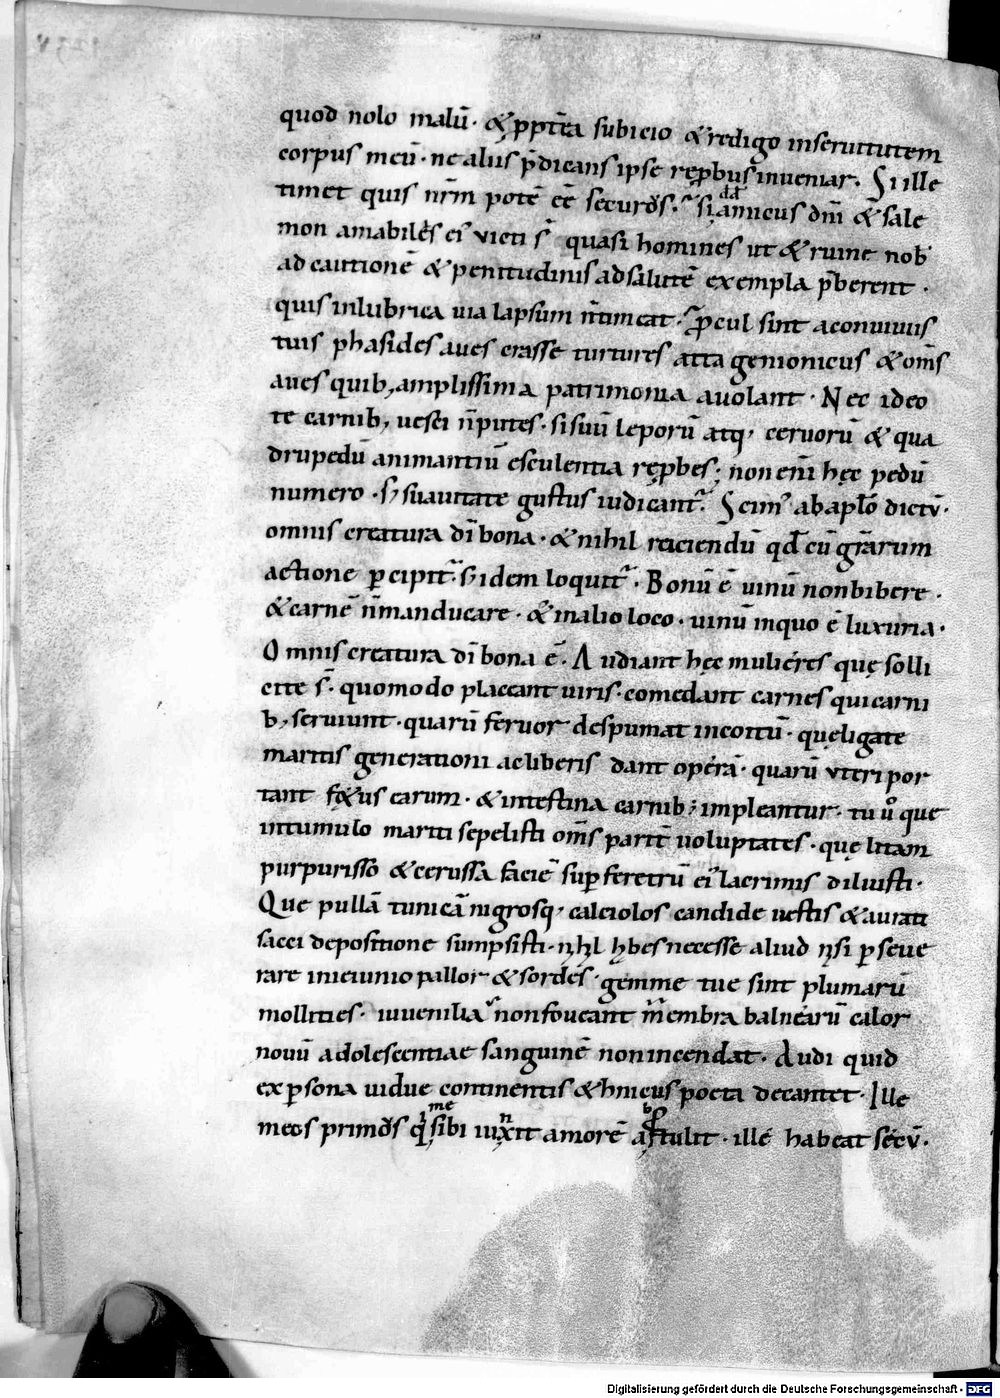 quod nolo malū· & ꝓpt̄ea subicio & redigo inseruitutem
corpus meū· ne aliis p̄dicans ipse rep̱bus inueniar. Si ille
timet quis nr̄m potē eē securꝰ· si dd̄ amicus dn̄i & salo
mon amabiles ei' uicti s̄ quasi homines ut & ruine nob̄
ad cautionē & penitudinis ad salutē exempla p̄berent·
quis inlubrica uia lapsum n̄ timeat· ꝓcul sint aconuiuiis
tuis phasides aues crasse turtures attagenionicus & om̄s
aues quib; amplissima patrimonia auolant· Nec ideo
te carnib; uesci n̄ putes· si suū leporū atq; ceruorū & qua
drupedū animantiū esculentia rep̱bes; non enī hęc pedū
numero· s; suauitate gustus iudicant'. Scim' ab aplo dictū·
omnis creatura dī bona· & nihil reiciendū qd̄ cū gr̄arum
actione p̱cipit'· s; idem loquit'· Bonū ē uinū non bibere·
& carnē n̄ manducare· & in alio loco· uinū in quo ē luxuria·
Omnis creatura dī bona ē· Audiant hęc mulieres quę solli
cite s̄· quomodo placeant uiris· comedant carnes qui carni
b; seruiunt· quarū feruor despumat in coitū· que ligate
maritis generationi ac liberis dant operā· quarū uteri por
tant fęt' earum· & intestina carnib; impleantur· tu ů que
in tumulo mariti sepelisti om̄s parit̄ uoluptates· quę litam
purpurisso & cerussa faciē sup̱ feretrū ei' lacrimis diluisti·
Que pullā tunicā nigrosq; calciolos candide uestis & aurati
sacci depositione sumpsisti· n̄hl hbes necesse aliud n̄si p̱seue
rare in ieiunio pallor & sordes· gemme tue sint plumarū
mollities· iuuenilia non foueant mēmbra balnearū calor
nouū adolescentiae sanguinē non incendat· Audi quid
ex p̱sona uidue continentis &hnicus poeta decantet· Ille
meos primꝰ q me sibi iunxit amorē abstulit· ille habeat secū·
Digitalisierung gefördert durch die Deutsche Forschungsgemeinschaft - DFG